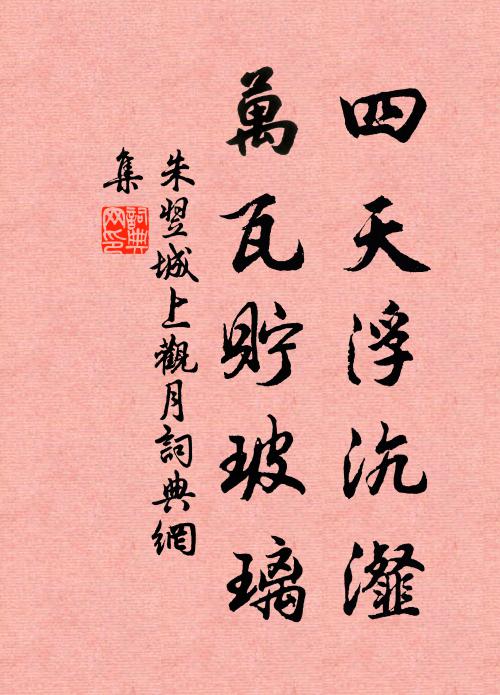 四天浮沆瀣
萬瓦貯玻璃
朱翌城上觀月詞典網
集
詞典
网印